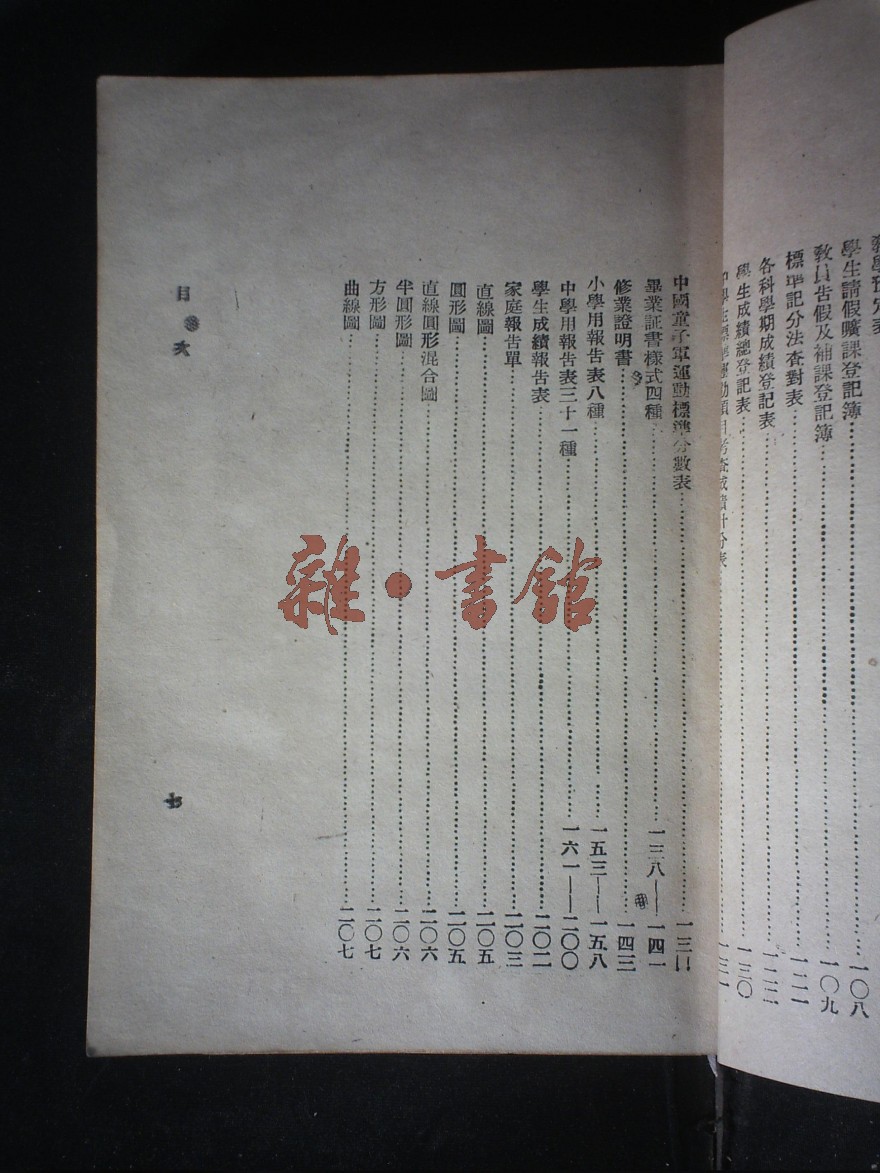 學生請假曠課登記簿……一〇八
教員告假及補課登記簿……一〇九
標準記分法查對表
各科學期成績登記表
學生成績總登記表……一三〇
中國童子軍運動標準分數表
畢業証書樣式四種……一三八——一四一
修業證明書……一四三
小學用報告表八種……一五三——一五八
中學用報告表三十一種……一六一——二〇〇
學生成績報告表……二〇二
家庭報告單……二〇三
直線圖……二〇五
圓形圖……二〇五
直線圓形混合圖……二〇六
半圓形圖……二〇六
方形圖……二〇七
曲線圖……二〇七
目 次
七
雜·書館